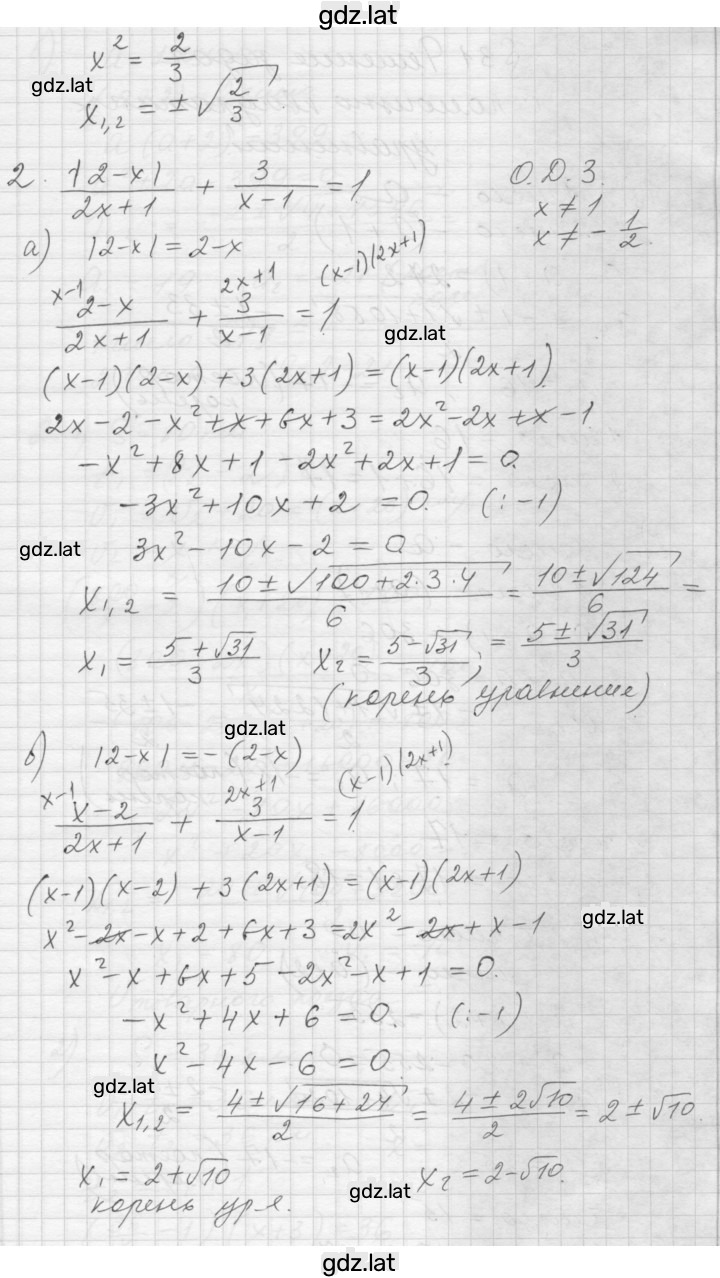 gdz.lat
x² = 2/3
gdz.lat
x₁,₂ = ± √(2/3)
2. |2-x|/(2x+1) + 3/(x-1) = 1
О.Д.З.
x ≠ 1
x ≠ - 1/2.
а) |2-x| = 2-x
x-1 2x+1 (x-1)(2x+1)
(2-x)/(2x+1) + 3/(x-1) = 1
gdz.lat
(x-1)(2-x) + 3(2x+1) = (x-1)(2x+1)
2x - 2 - x² + x + 6x + 3 = 2x² - 2x + x - 1
-x² + 8x + 1 - 2x² + 2x + 1 = 0.
-3x² + 10x + 2 = 0. (: -1)
gdz.lat
3x² - 10x - 2 = 0
x₁,₂ = (10 ± √(100 + 2·3·4))/6 = (10 ± √124)/6 =
x₁ = (5 + √31)/3 x₂ = (5 - √31)/3; = (5 ± √31)/3
(корень уравнение)
gdz.lat
б) |2-x| = -(2-x)
x-1 2x+1 (x-1)(2x+1)
(x-2)/(2x+1) + 3/(x-1) = 1
(x-1)(x-2) + 3(2x+1) = (x-1)(2x+1)
gdz.lat
x² - 2x - x + 2 + 6x + 3 = 2x² - 2x + x - 1
x² - x + 6x + 5 - 2x² - x + 1 = 0.
-x² + 4x + 6 = 0. (: -1)
x² - 4x - 6 = 0
gdz.lat
x₁,₂ = (4 ± √(16 + 24))/2 = (4 ± 2√10)/2 = 2 ± √10.
x₁ = 2 + √10 x₂ = 2 - √10.
gdz.lat
корень ур-я.
gdz.lat